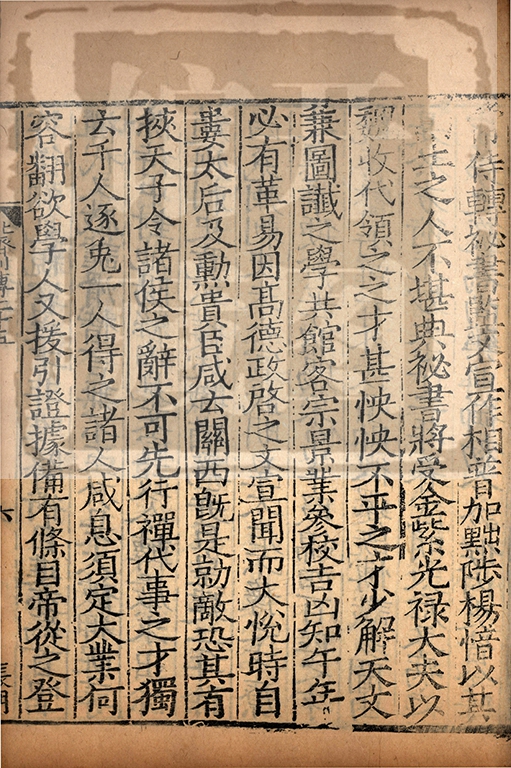 侍轉秘書監文宣作相普加黜陟楊愔以其
士之人不堪典秘書將受金紫光禄大夫以
魏收代領之之才甚怏怏不平之才少解天文
兼圖讖之學共館客宗景業參校吉凶知午年
必有革易因髙德政啓之文宣聞而大恱時自
婁太后及勲貴臣咸云關西旣是勍敵恐其有
挾天子令諸侯之辭不可先行禪代事之才獨
云千人逐兎一人得之諸人咸息須定大業何
容翻欲學人又援引證據備有條目帝從之登